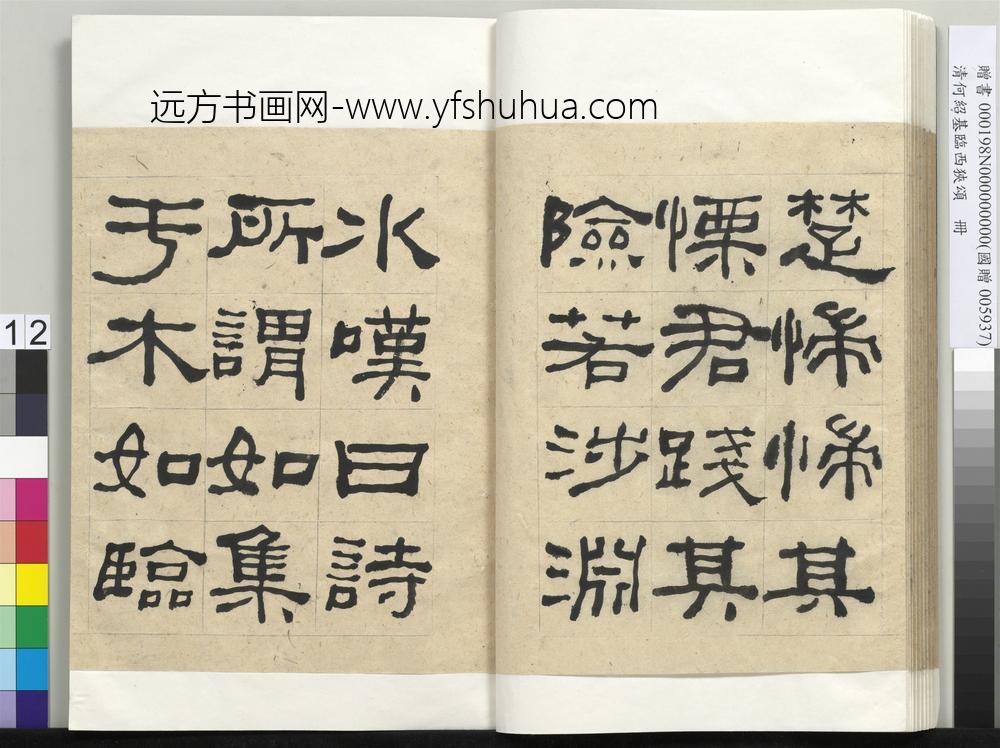 远方书画网-www.yfshuhua.com
楚惴惴其
慄君踐其
險若涉淵
冰嘆曰詩
所謂如集
于木如臨
贈書 000198N000000000(國贈 005937)
清何紹基臨西狹頌 冊
12